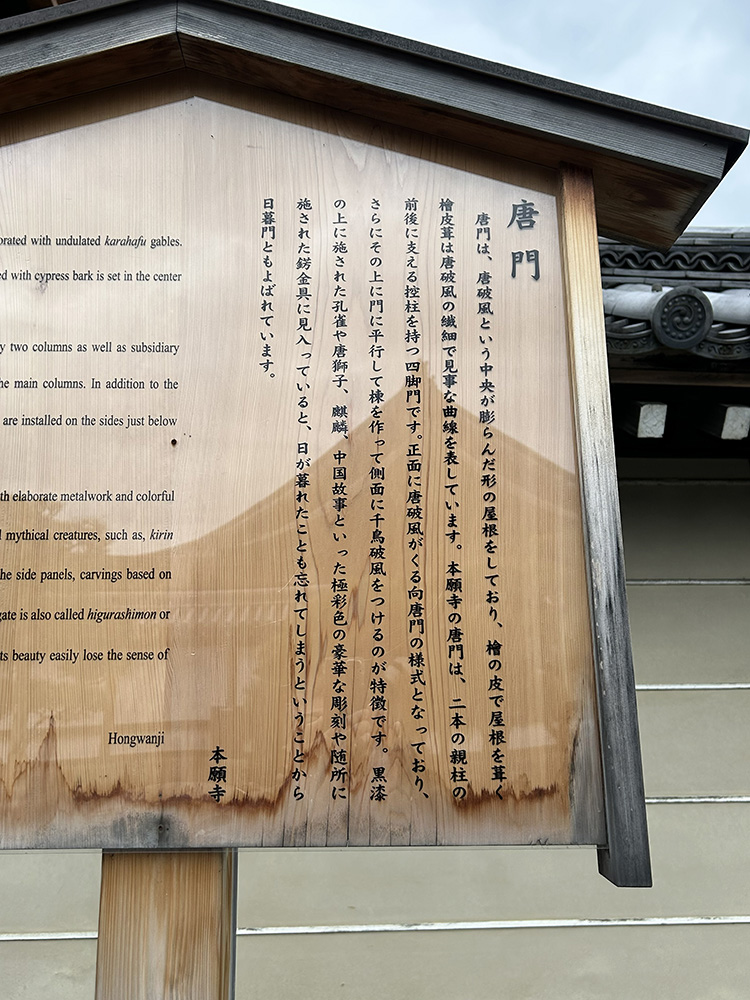 唐門
唐門は、唐破風という中央が膨らんだ形の屋根をしており、檜の皮で屋根を葺く
檜皮葺は唐破風の繊細で見事な曲線を表しています。本願寺の唐門は、二本の親柱の
前後に支える控柱を持つ四脚門です。正面に唐破風がくる向唐門の様式となっており、
さらにその上に門に平行して棟を作って側面に千鳥破風をつけるのが特徴です。黒漆
の上に施された孔雀や唐獅子、麒麟、中国故事といった極彩色の豪華な彫刻や随所に
施された錺金具に見入っていると、日が暮れたことも忘れてしまうということから
日暮門ともよばれています。
本願寺
orated with undulated karahafu gables.
ed with cypress bark is set in the center
y two columns as well as subsidiary
he main columns. In addition to the
are installed on the sides just below
th elaborate metalwork and colorful
l mythical creatures, such as, kirin
he side panels, carvings based on
gate is also called higurashimon or
ts beauty easily lose the sense of
Hongwanji